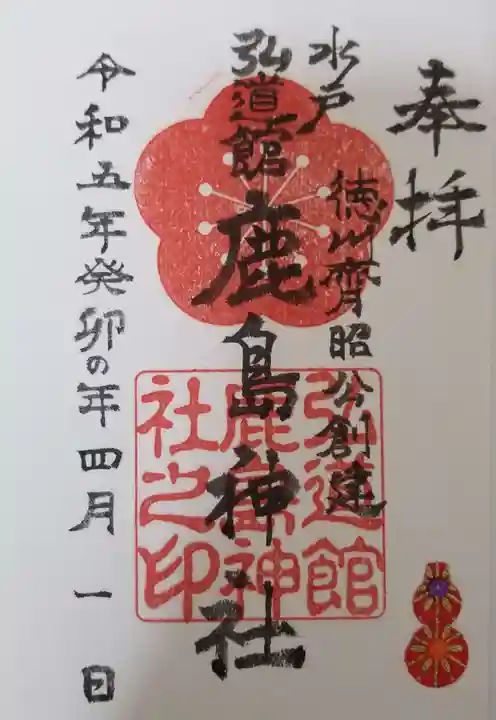 奉拝
水戸
徳川齊昭公創建
弘道館
鹿島神社
弘道館
鹿島神
社之印
令和五年癸卯の年四月一日